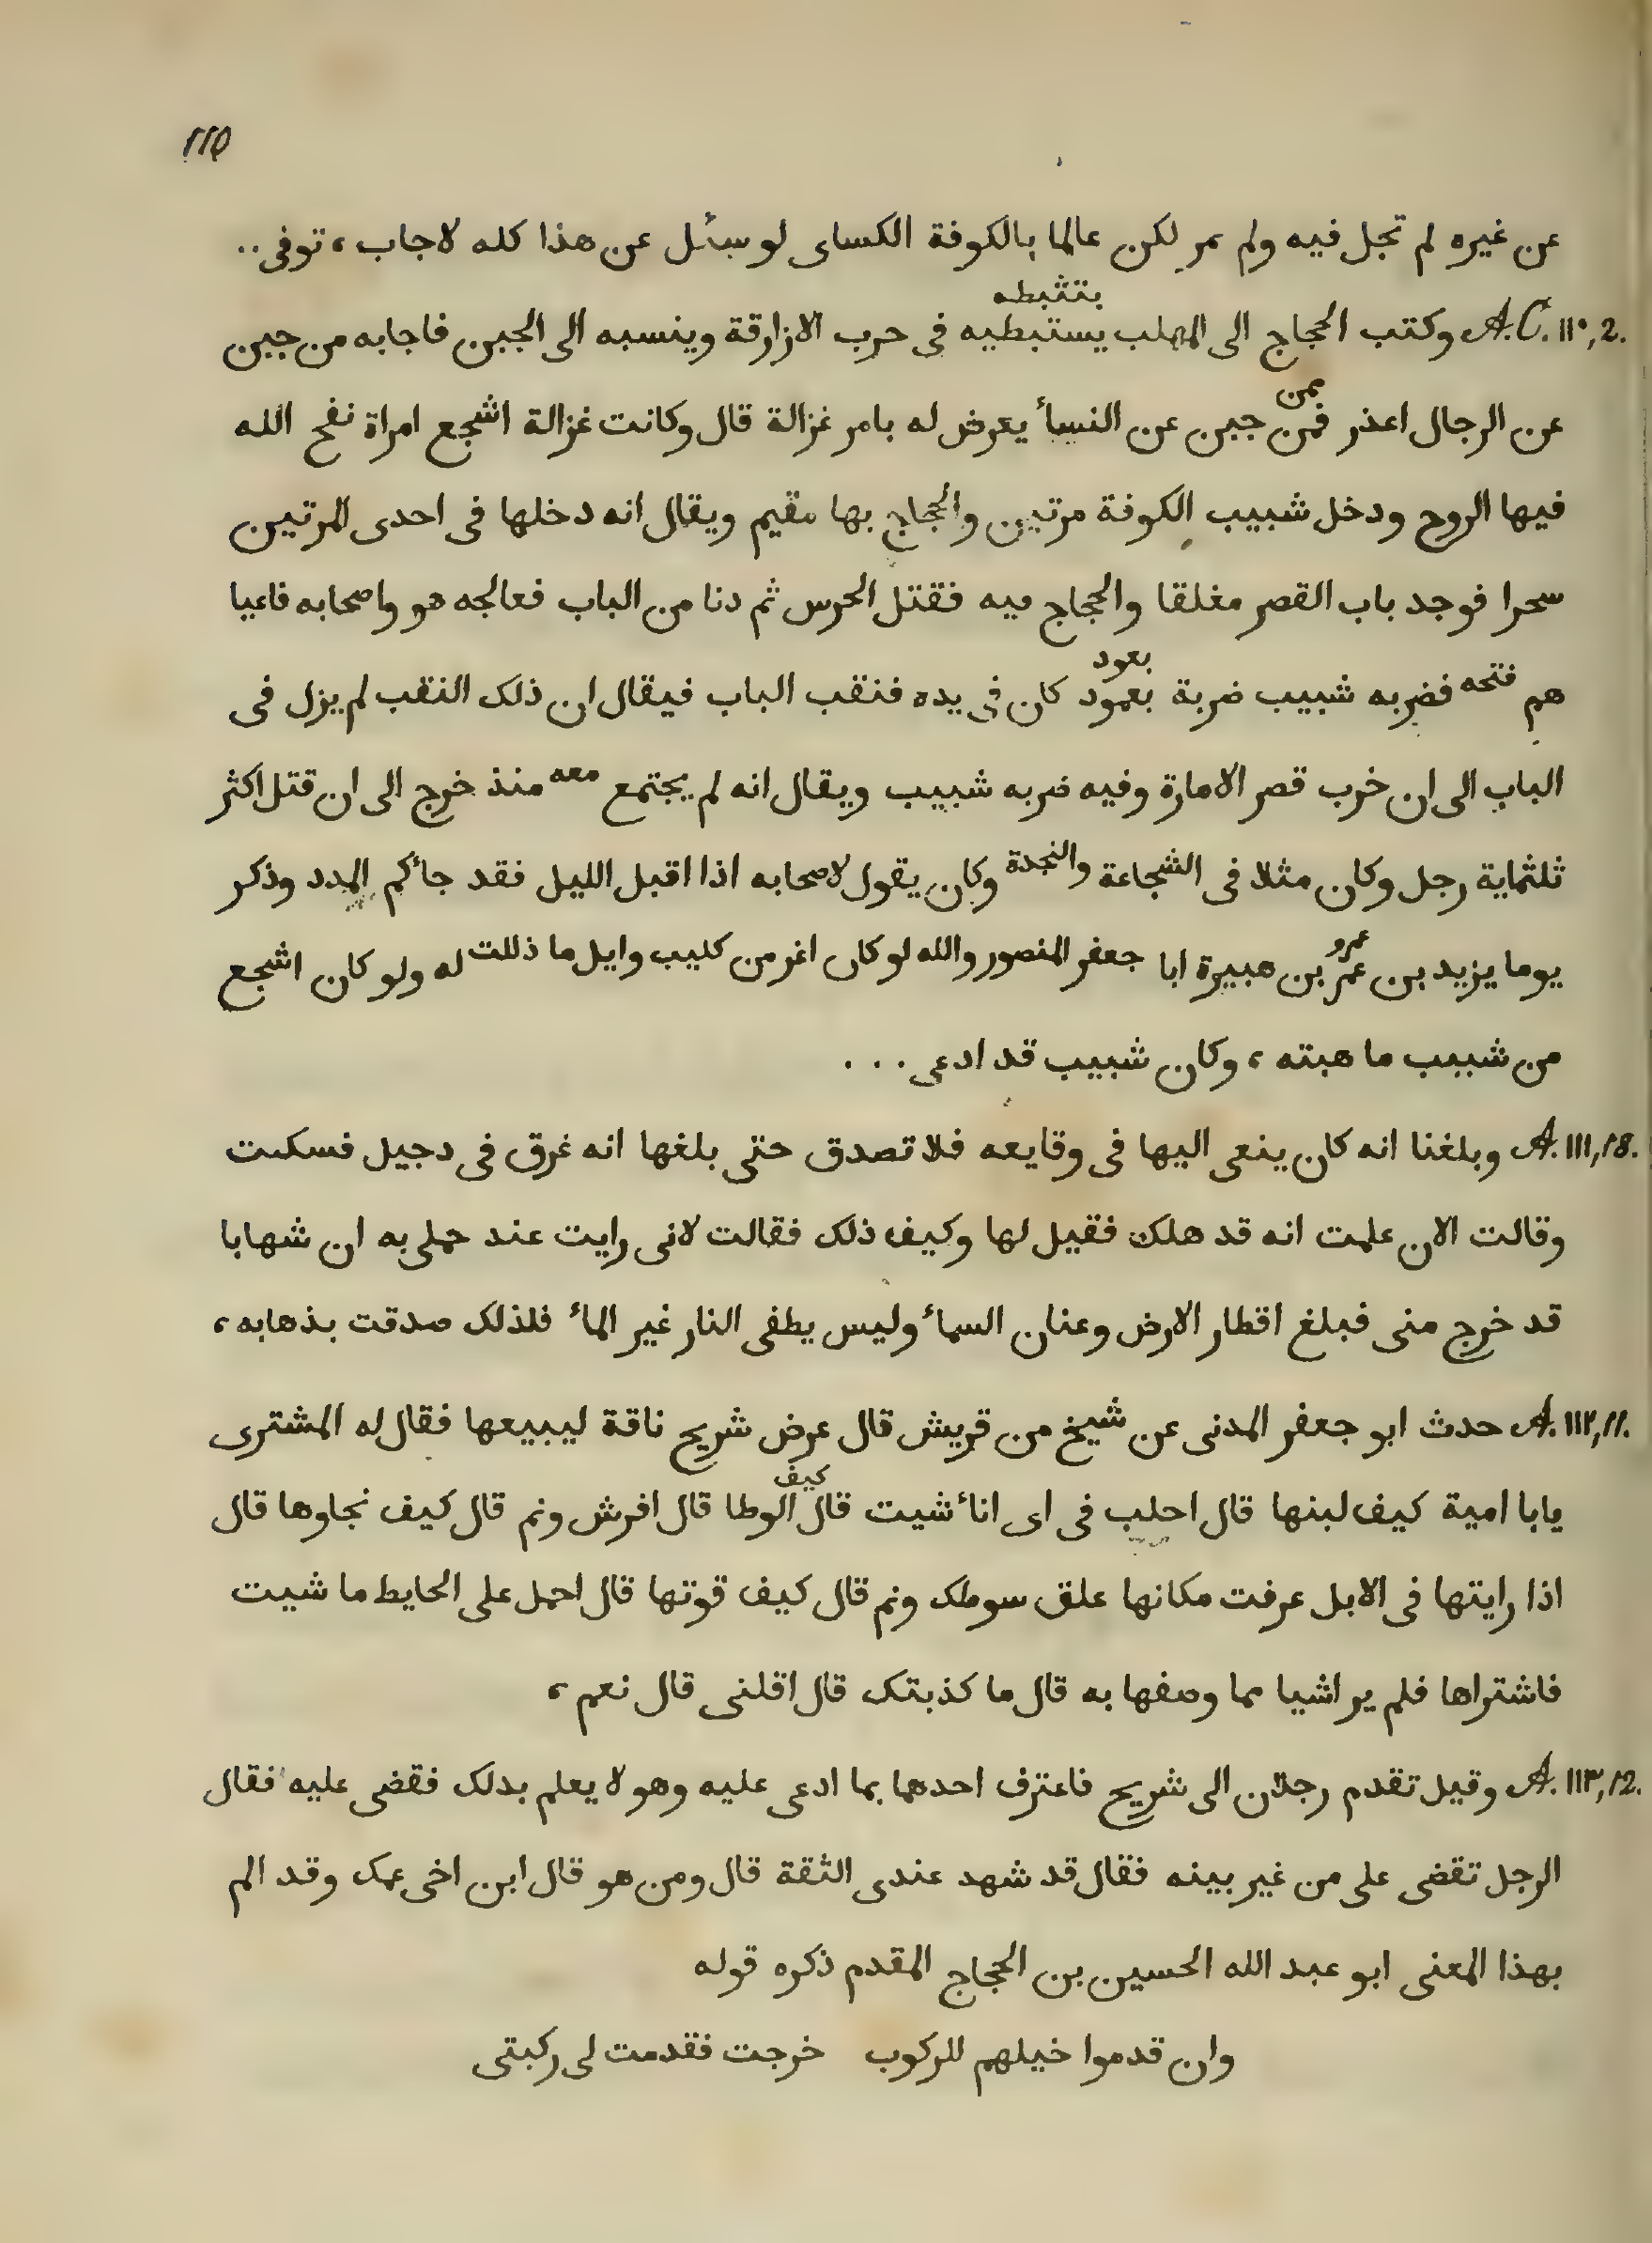 ١١٥
عن غيره لم تجل فيه ولم عر لكن عالما بالكوفة الكساى لو سئل عن هذا كله لاجاب، توفى..
بتثبطه
A.C. ١١٠,2. وكتب الحجاج الى المهلب يستبطيه فى حرب الازارقة وينسبه الى الجبن فاجابه من جبن
ممن
عن الرجال اعذر فمن جبن عن النسأ يعرض له بامر غزالة قال وكانت غزالة اشجع امراة نفح الله
فيها الروح ودخل شبيب الكوفة مرتين والحجاج بها مقيم ويقال انه دخلها فى احدى المرتين
سحرا فوجد باب القصر مغلقا والحجاج فيه فقتل الحرس ثم دنا من الباب فعالجه هو واصحابه فاعيا
بعود
هم فتحه فضربه شبيب ضربة بعمود كان فى يده فنقب الباب فيقال ان ذلك النقب لم يزل فى
الباب الى ان خرب قصر الامارة وفيه ضربه شبيب ويقال انه لم يجتمع معه منذ خرج الى ان قتل اكثر
ثلثماية رجل وكان مثلا فى الشجاعة والنجدة وكان يقول لاصحابه اذا اقبل الليل فقد جأكم المدد وذكر
عمرو
يوما يزيد بن عمر بن هبيرة ابا جعفر المنصور والله لو كان اغر من كليب وايل ما ذللت له ولو كان اشجع
من شبيب ما هبته، وكان شبيب قد ادعى ...
A. ١١١,18. وبلغنا انه كان ينعى اليها فى وقايعه فلا تصدق حتى بلغها انه غرق فى دجيل فسكت
وقالت الان علمت انه قد هلك فقيل لها وكيف ذلك فقالت لانى رايت عند حملى به ان شهابا
قد خرج منى فبلغ اقطار الارض وعنان السمأ وليس يطفى النار غير المأ فلذلك صدقت بذهابه،
A. ١١٢,11. حدث ابو جعفر المدنى عن شيخ من قريش قال عرض شريح ناقة ليبيعها فقال له المشترى
كيف
يابا امية كيف لبنها قال احلب فى اى انأ شيت قال الوطا قال افرش ونم قال كيف نجاوها قال
اذا رايتها فى الابل عرفت مكانها علق سوطك ونم قال كيف قوتها قال احمل على الحايط ما شيت
فاشتراها فلم ير اشيا مما وصفها به قال ما كذبتك قال اقلنى قال نعم،
A. ١١٣,12. وقيل تقدم رجلان الى شريح فاعترف احدهما بما ادعى عليه وهو لا يعلم بدلك فقضى عليه فقال
الرجل تقضى على من غير بينه فقال قد شهد عندى الثقة قال ومن هو قال ابن اخى عمك وقد الم
بهذا المعنى ابو عبد الله الحسين بن الحجاج المقدم ذكره قوله
وان قدموا خيلهم للركوب خرجت فقدمت لى ركبتى